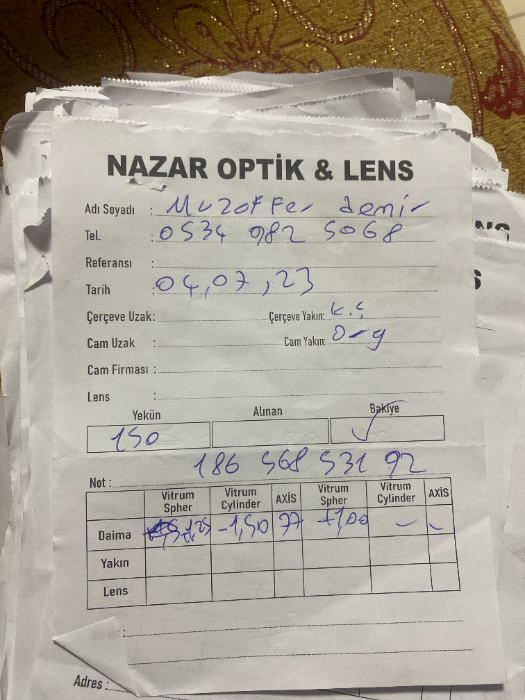 NAZAR OPTİK & LENS
Adı Soyadı : Muzaffer demir
Tel. : 0534 982 5068
Referansı :
Tarih : 04,07,23
Çerçeve Uzak: Çerçeve Yakın: k.ç
Cam Uzak : Cam Yakın: org
Cam Firması :
Lens :
Yekün Alınan Bakiye
150 ✓
Not : 186 568 531 92
Vitrum Spher Vitrum Cylinder AXİS Vitrum Spher Vitrum Cylinder AXİS
Daima +1,25 -1,50 77 +1,00 – –
Yakın
Lens
Adres :